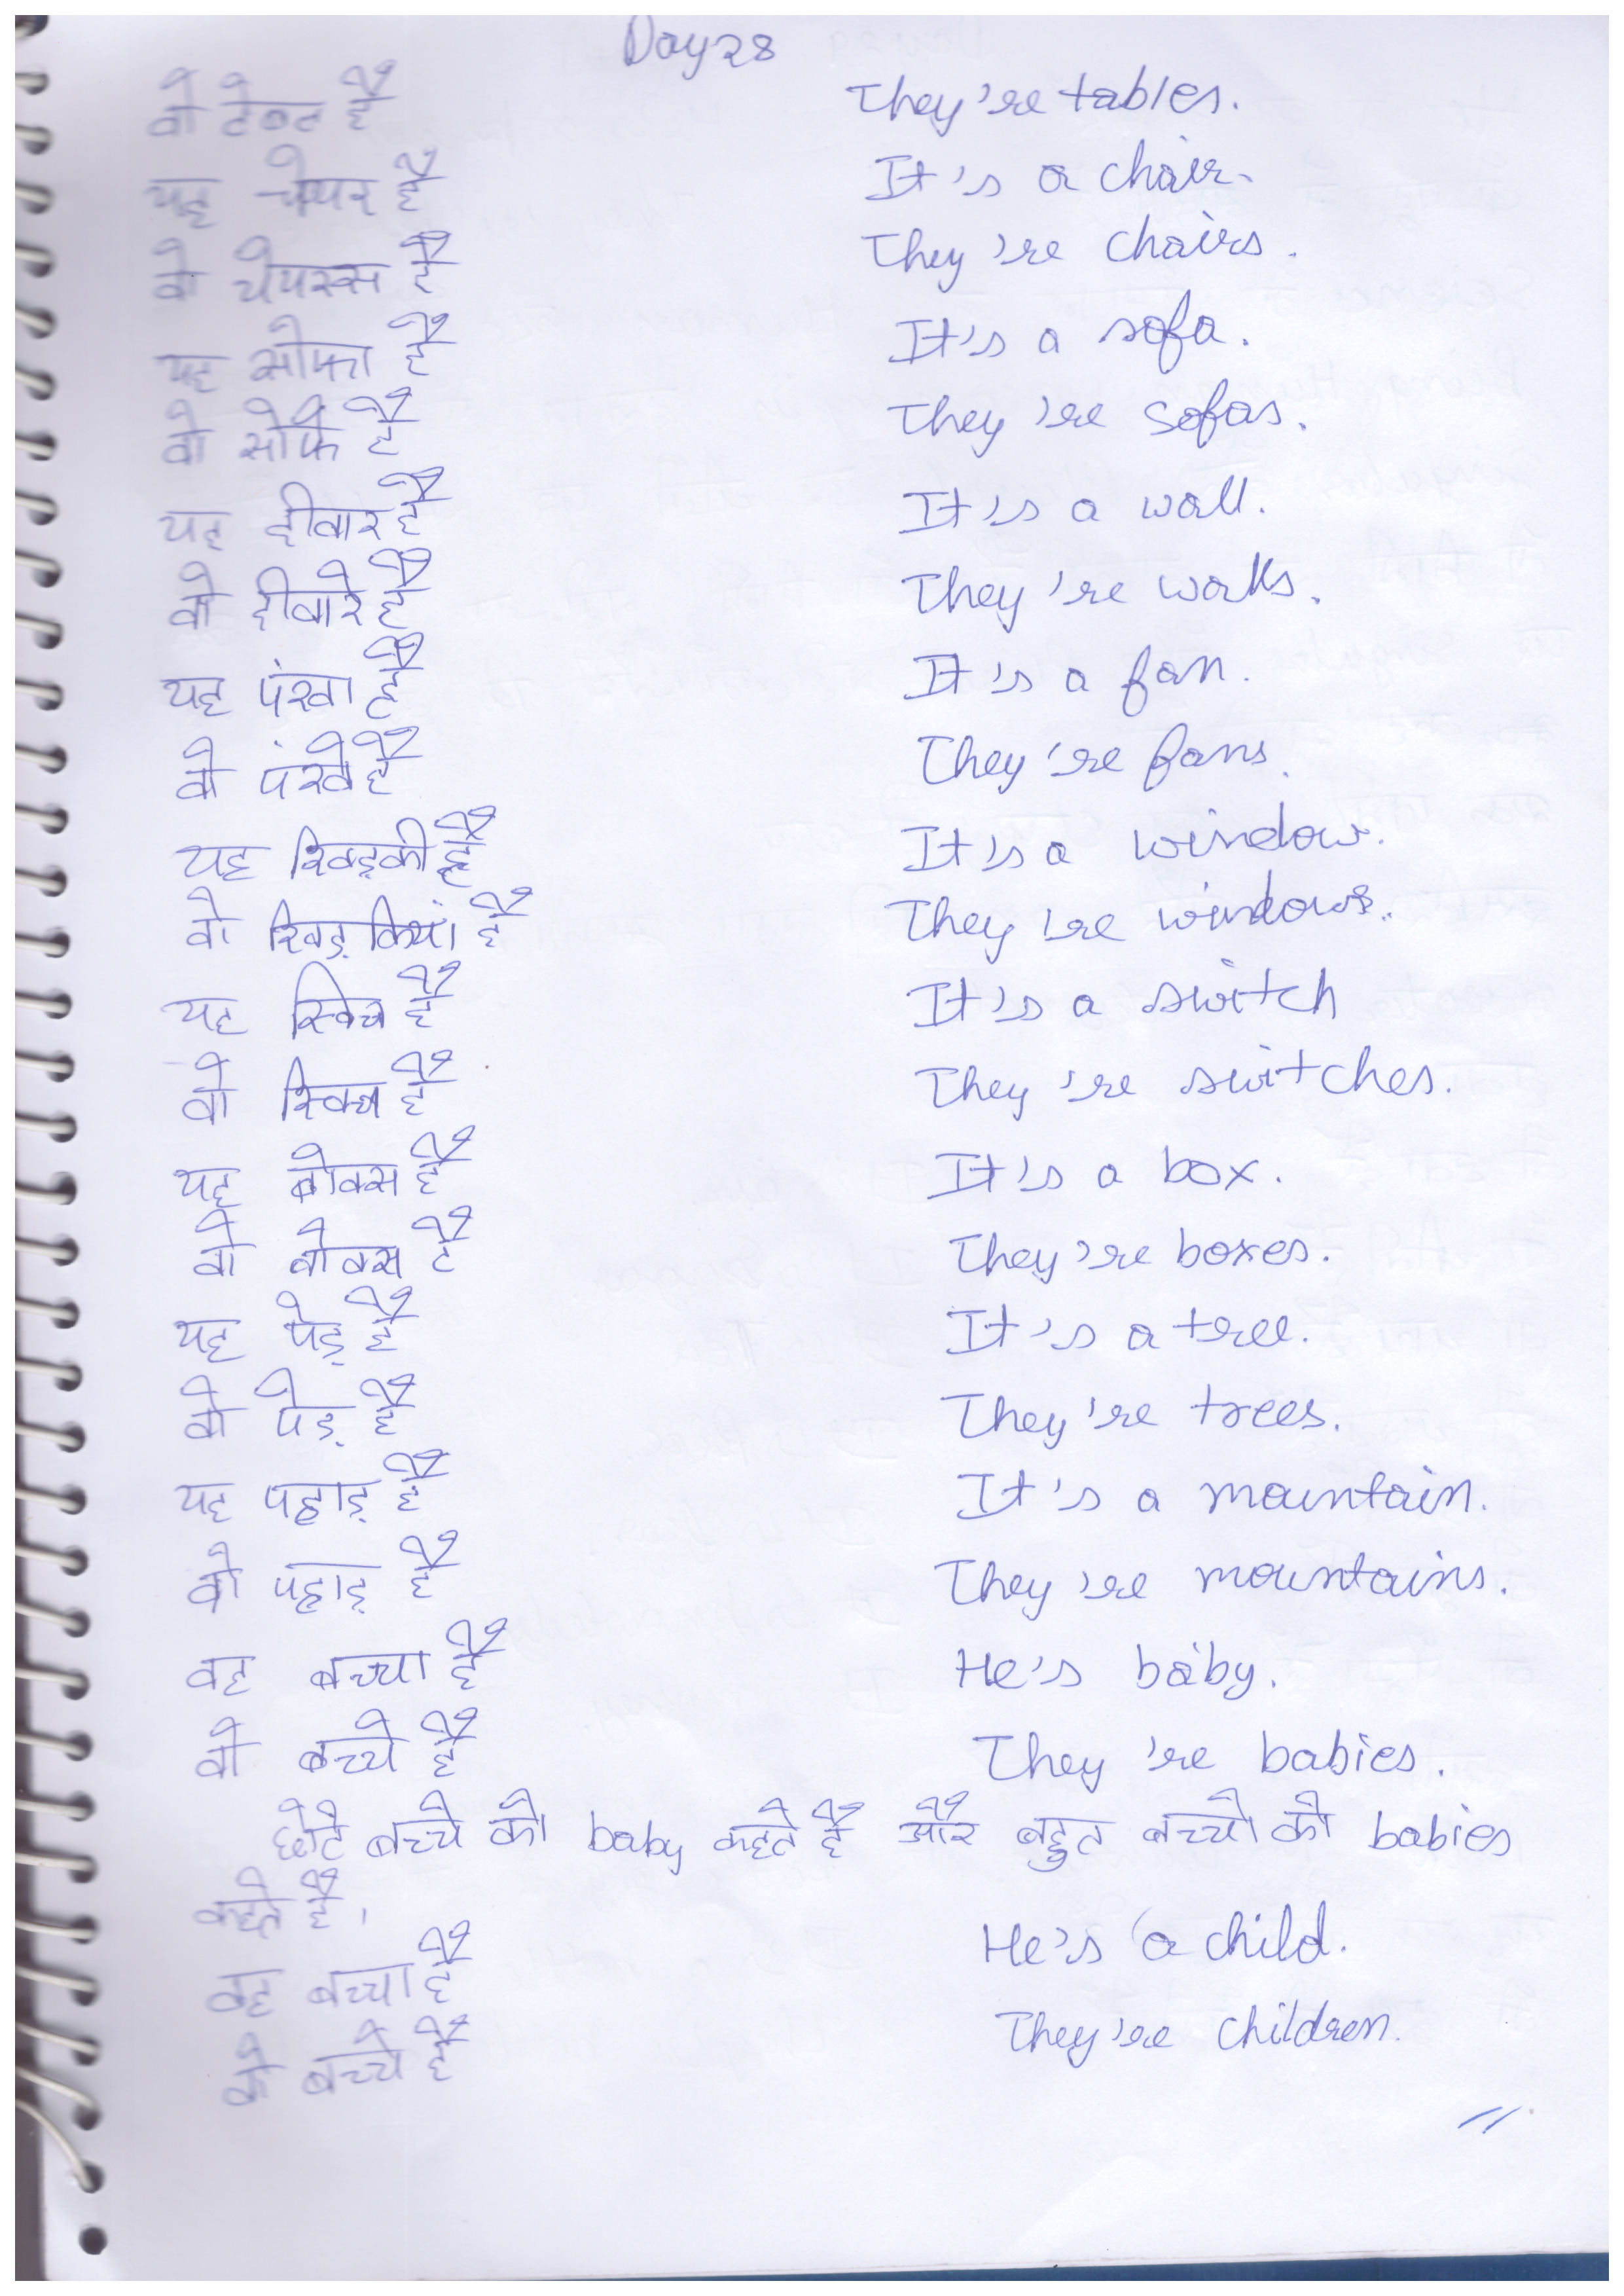 Day 28
वो टेबल है They're tables.
यह चेयर है It's a chair.
वो चेयरस है They're chairs.
यह सोफा है It's a sofa.
वो सोफे है They're sofas.
यह दीवार है It's a wall.
वो दीवारे है They're walls.
यह पंखा है It's a fan.
वो पंखे है They're fans.
यह खिड़की है It's a window.
वो खिड़कियां है They're windows.
यह स्विच है It's a switch
वो स्विच है They're switches.
यह बोक्स है It's a box.
वो बोक्स है They're boxes.
यह पेड़ है It's a tree.
वो पेड़ है They're trees.
यह पहाड़ है It's a mountain.
वो पहाड़ है They're mountains.
वह बच्चा है He's baby.
वो बच्चे है They're babies.
छोटे बच्चे को baby कहते है और बहुत बच्चो को babies
कहते है।
वह बच्चा है He's a child.
वो बच्चे है They're children.